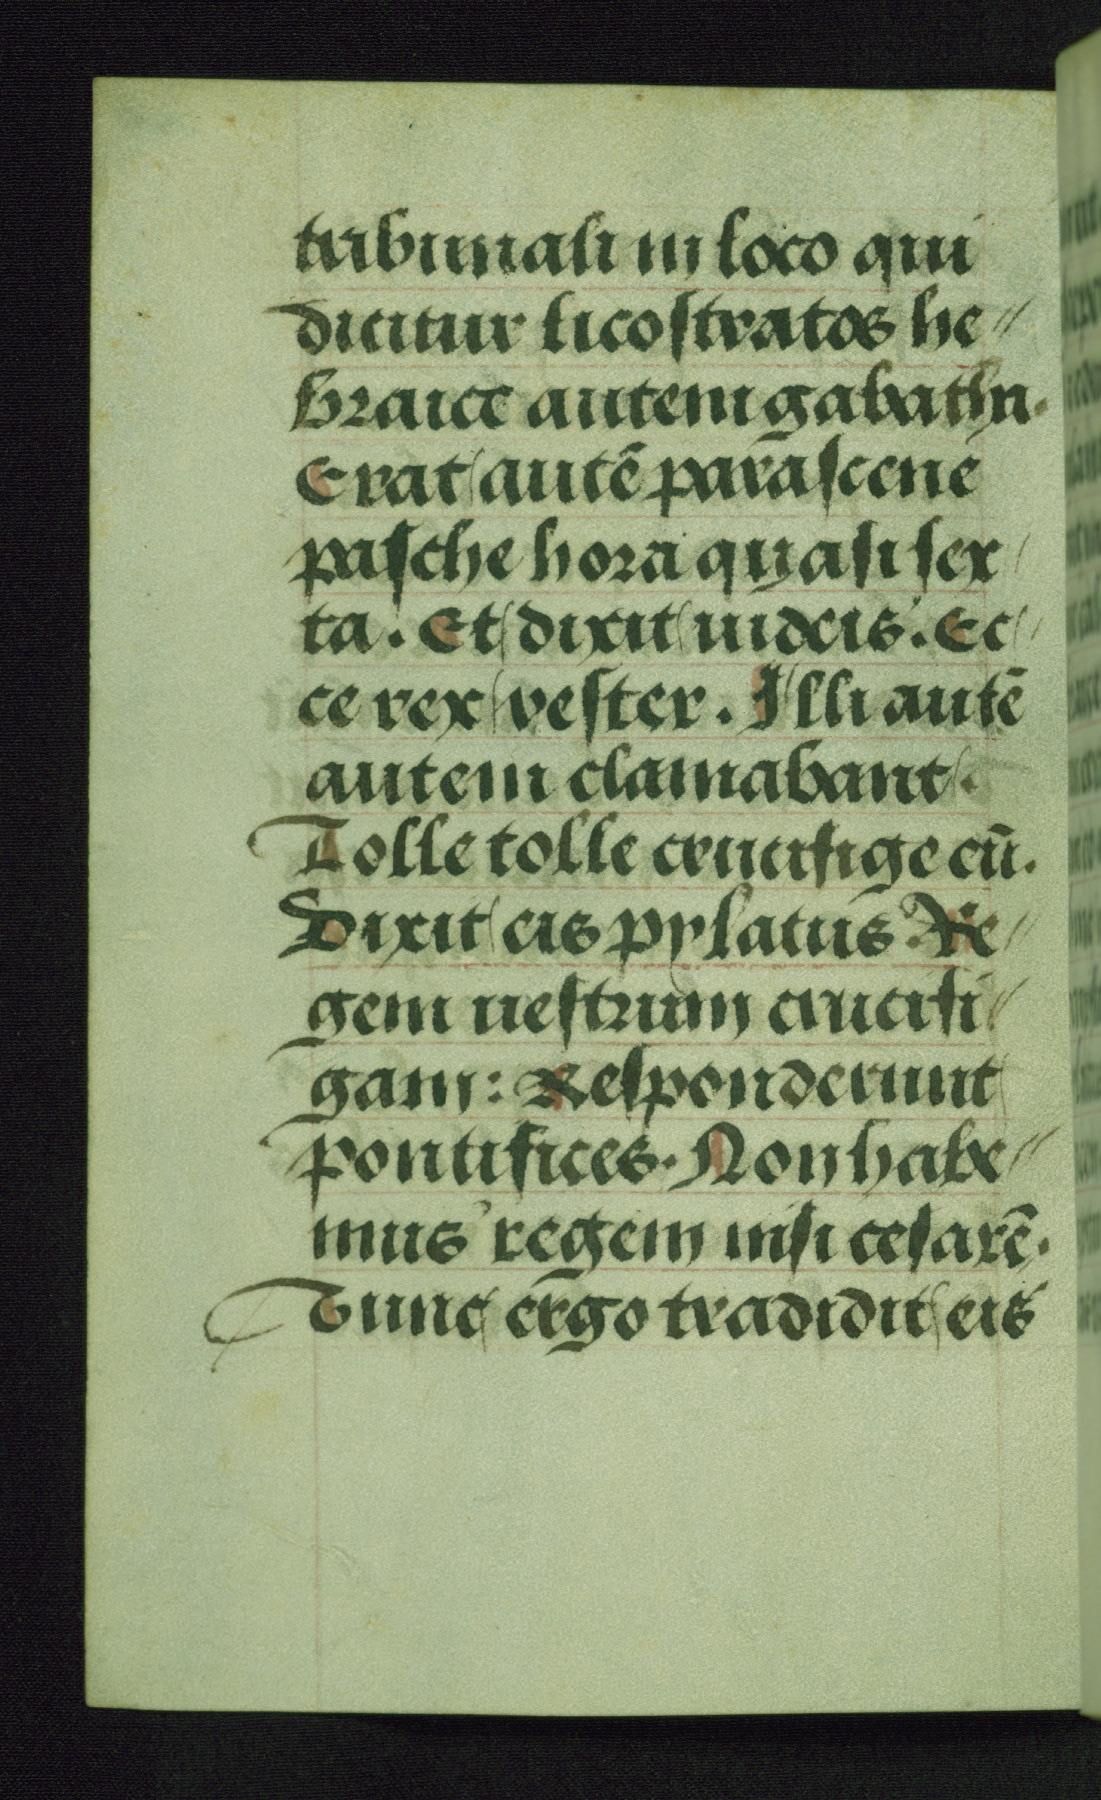 tribunali in loco qui
dicitur licostratos he〃
braice autem gabatha.
Erat autē parascene
pasche hora quasi sex
ta. Et dixit iudeis. Ec〃
ce rex vester. Illi autē
autem clamabant.
Tolle tolle crucifige eū.
Dixit eis pylatus Re〃
gem uestrum crucifi〃
gam: Responderunt
pontifices. Non habe〃
mus regem nisi cesarē.
Tunc ergo tradidit eis